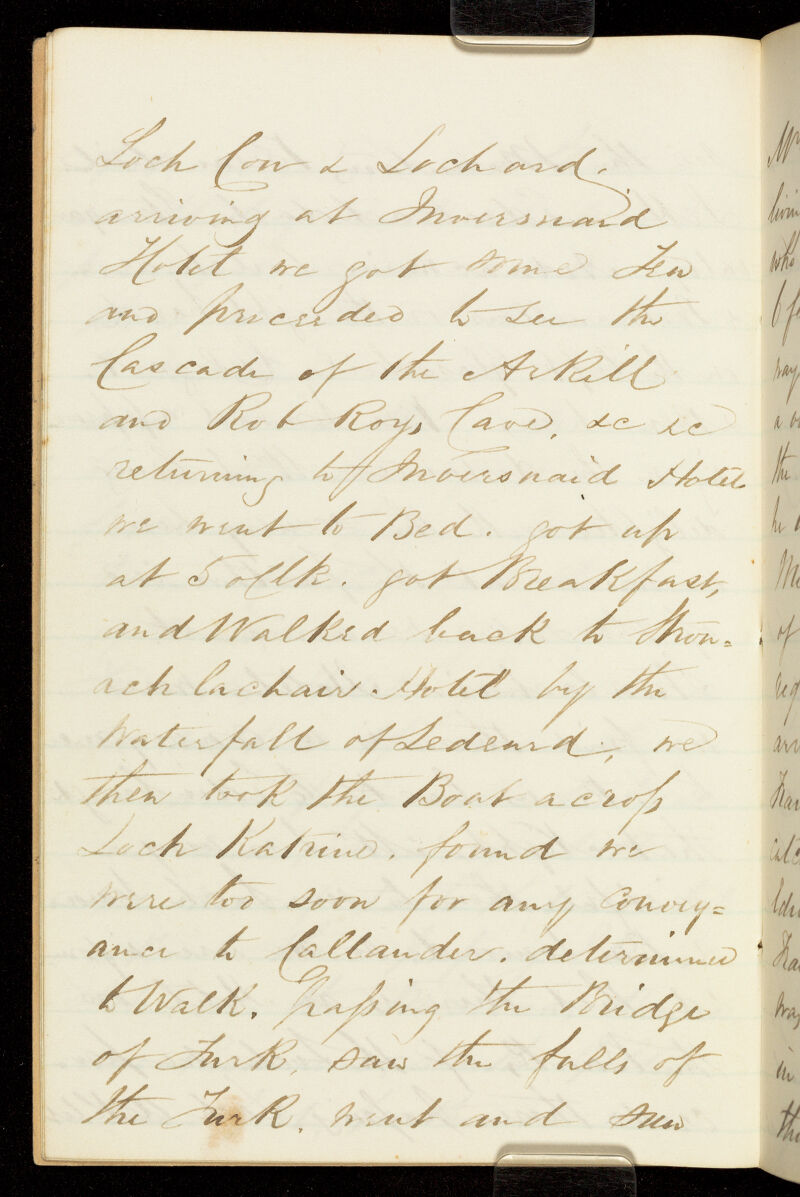 Loch Con & Loch ard.
arriving at Inversnaid
Hotel we got some Tea
and proceeded to see the
Cascade of the Arkill
and Rob Roys Cave, &c &c
returning to Inversnaid Hotel
we went to Bed. got up
at 5 oClk. got Breakfast,
and Walked back to Stron=
ach lachair. Hotel by the
Waterfall of Ledeard, we
then took the Boat across
Loch Katrine. found we
were too soon for any Convey=
ance to Callander. determined
to Walk. passing the Bridge
of Turk. saw the falls of
the Turk. went and saw